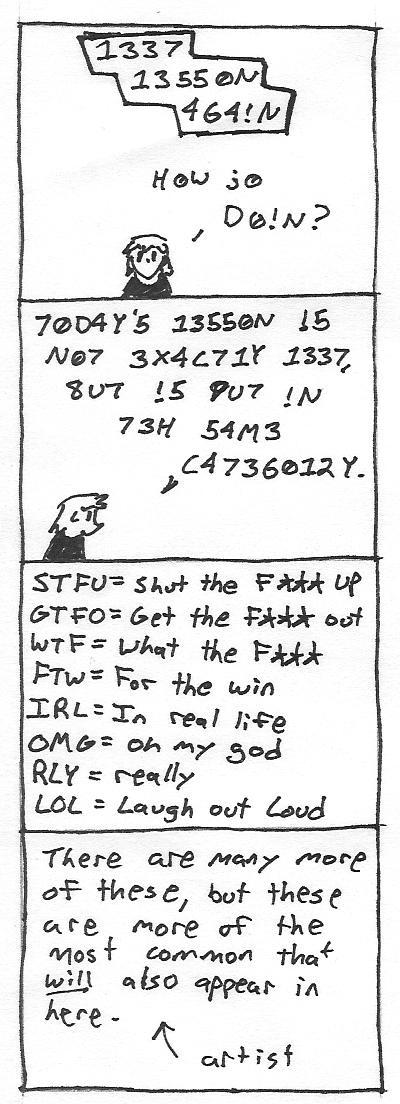 1337
13550N
464!N
HOW jo
DO!N?
70D4Y'5 13550N !5
NO7 3X4C71Y 1337,
8U7 !5 PU7 !N
73H 54M3
C4736012Y.
STFU= Shut the F*** up
GTFO= Get the F*** out
WTF= What the F***
FTW= For the win
IRL= In real life
OMG= oh my god
RLY = really
LOL = Laugh out Loud
There are many more
of these, but these
are more of the
most common that
will also appear in
here.
artist